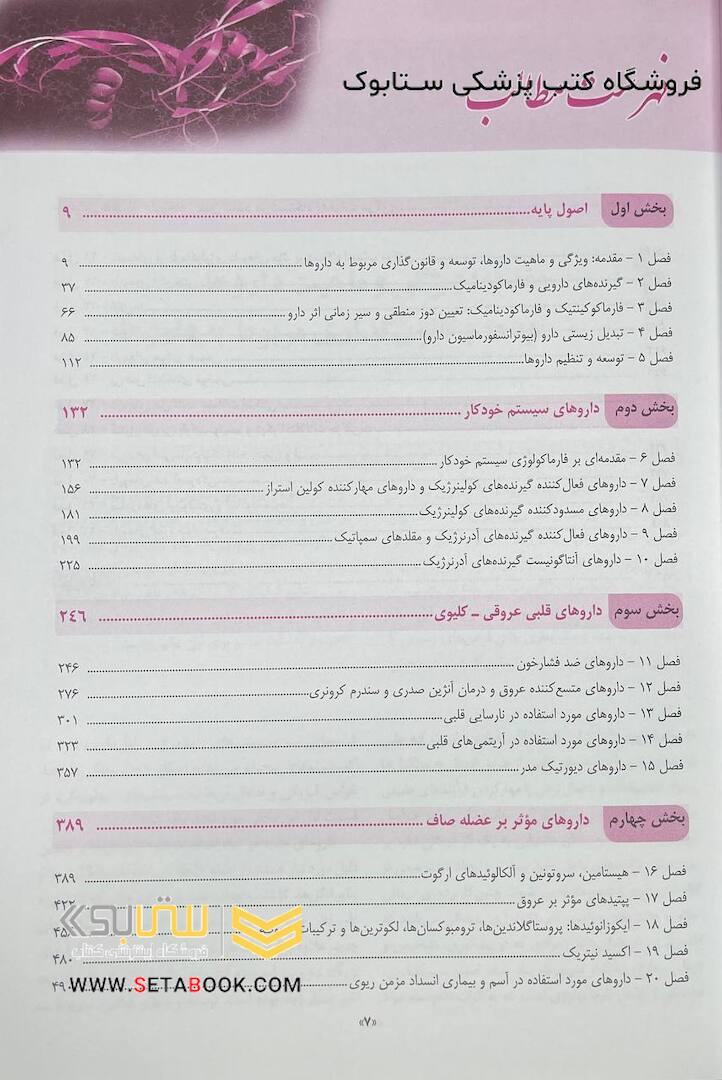 فروشگاه کتب پزشکی ستابوک
فهرست مطالب
بخش اول اصول پایه ۹
فصل ۱ - مقدمه: ویژگی و ماهیت داروها، توسعه و قانون‌گذاری مربوط به داروها ۹
فصل ۲ - گیرنده‌های دارویی و فارماکودینامیک ۳۷
فصل ۳ - فارماکوکینتیک و فارماکودینامیک: تعیین دوز منطقی و سیر زمانی اثر دارو ۶۶
فصل ۴ - تبدیل زیستی دارو (بیوترانسفورماسیون دارو) ۸۵
فصل ۵ - توسعه و تنظیم داروها ۱۱۲
بخش دوم داروهای سیستم خودکار ۱۳۲
فصل ۶ - مقدمه‌ای بر فارماکولوژی سیستم خودکار ۱۳۲
فصل ۷ - داروهای فعال‌کننده گیرنده‌های کولینرژیک و داروهای مهارکننده کولین استراز ۱۵۶
فصل ۸ - داروهای مسدودکننده گیرنده‌های کولینرژیک ۱۸۱
فصل ۹ - داروهای فعال‌کننده گیرنده‌های آدرنرژیک و مقلدهای سمپاتیک ۱۹۹
فصل ۱۰ - داروهای آنتاگونیست گیرنده‌های آدرنرژیک ۲۲۵
بخش سوم داروهای قلبی عروقی ـ کلیوی ۲۴۶
فصل ۱۱ - داروهای ضد فشارخون ۲۴۶
فصل ۱۲ - داروهای متسع‌کننده عروق و درمان آنژین صدری و سندرم کرونری ۲۷۶
فصل ۱۳ - داروهای مورد استفاده در نارسایی قلبی ۳۰۱
فصل ۱۴ - داروهای مورد استفاده در آریتمی‌های قلبی ۳۲۳
فصل ۱۵ - داروهای دیورتیک مدر ۳۵۷
بخش چهارم داروهای مؤثر بر عضله صاف ۳۸۹
فصل ۱۶ - هیستامین، سروتونین و آلکالوئیدهای ارگوت ۳۸۹
فصل ۱۷ - پپتیدهای مؤثر بر عروق ۴۲۲
فصل ۱۸ - ایکوزانوئیدها: پروستاگلاندین‌ها، ترومبوکسان‌ها، لکوترین‌ها و ترکیبات
فصل ۱۹ - اکسید نیتریک ۴۸۰
فصل ۲۰ - داروهای مورد استفاده در آسم و بیماری انسداد مزمن ریوی
ستابوک
فروشگاه اینترنتی کتاب
WWW.SETABOOK.COM
«۷»